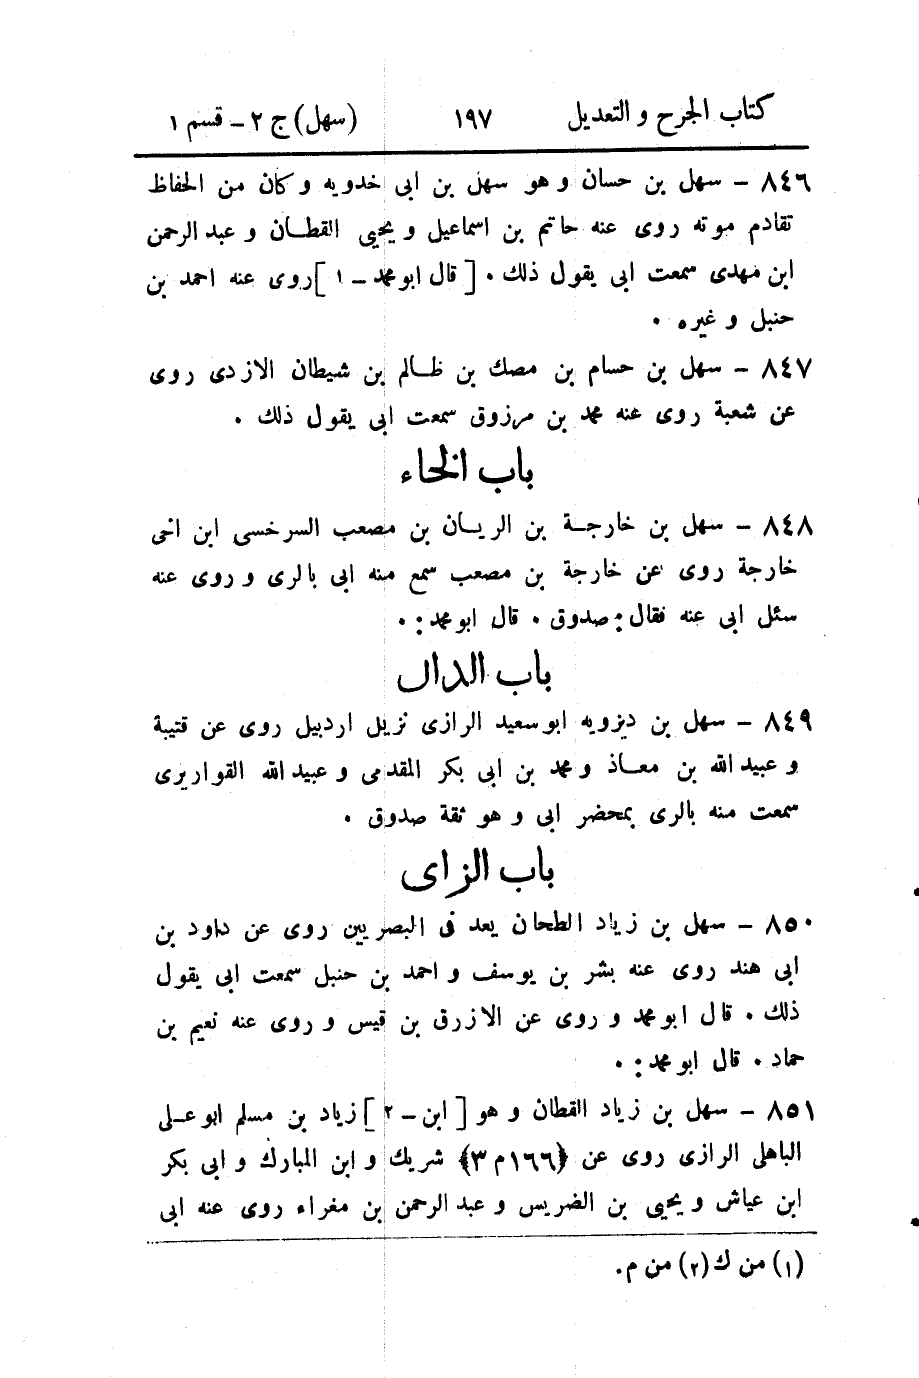 كتاب الجرح و التعديل ١٩٧ (سهل) ج ٢ – قسم ١
٨٤٦ – سهل بن حسان و هو سهل بن ابى خدويه و كان من الحفاظ
تقادم موته روى عنه حاتم بن اسماعيل و يحيى القطان و عبد الرحمن
ابن مهدى سمعت ابى يقول ذلك . [ قال ابو محمد – ١ ] روى عنه احمد بن
حنبل و غيره .
٨٤٧ – سهل بن حسام بن مصك بن ظالم بن شيطان الازدى روى
عن شعبة روى عنه محمد بن مرزوق سمعت ابى يقول ذلك .
باب الخاء
٨٤٨ – سهل بن خارجة بن الريان بن مصعب السرخسى ابن اخى
خارجة روى عن خارجة بن مصعب سمع منه ابى بالرى و روى عنه
سئل ابى عنه فقال : صدوق . قال ابو محمد : .
باب الدال
٨٤٩ – سهل بن ديزويه ابو سعيد الرازى نزيل اردبيل روى عن قتيبة
و عبيد الله بن معاذ و محمد بن ابى بكر المقدمى و عبيد الله القواريرى
سمعت منه بالرى بمحضر ابى و هو ثقة صدوق .
باب الزاى
٨٥٠ – سهل بن زياد الطحان يعد فى البصريين روى عن داود بن
ابى هند روى عنه بشر بن يوسف و احمد بن حنبل سمعت ابى يقول
ذلك . قال ابو محمد و روى عن الازرق بن قيس و روى عنه نعيم بن
حماد . قال ابو محمد : .
٨٥١ – سهل بن زياد القطان و هو [ ابن – ٢ ] زياد بن مسلم ابو على
الباهلى الرازى روى عن ﴿١٦٦ م ٣﴾ شريك و ابن المبارك و ابى بكر
ابن عياش و يحيى بن الضريس و عبد الرحمن بن مغراء روى عنه ابى
(١) من ك (٢) من م.